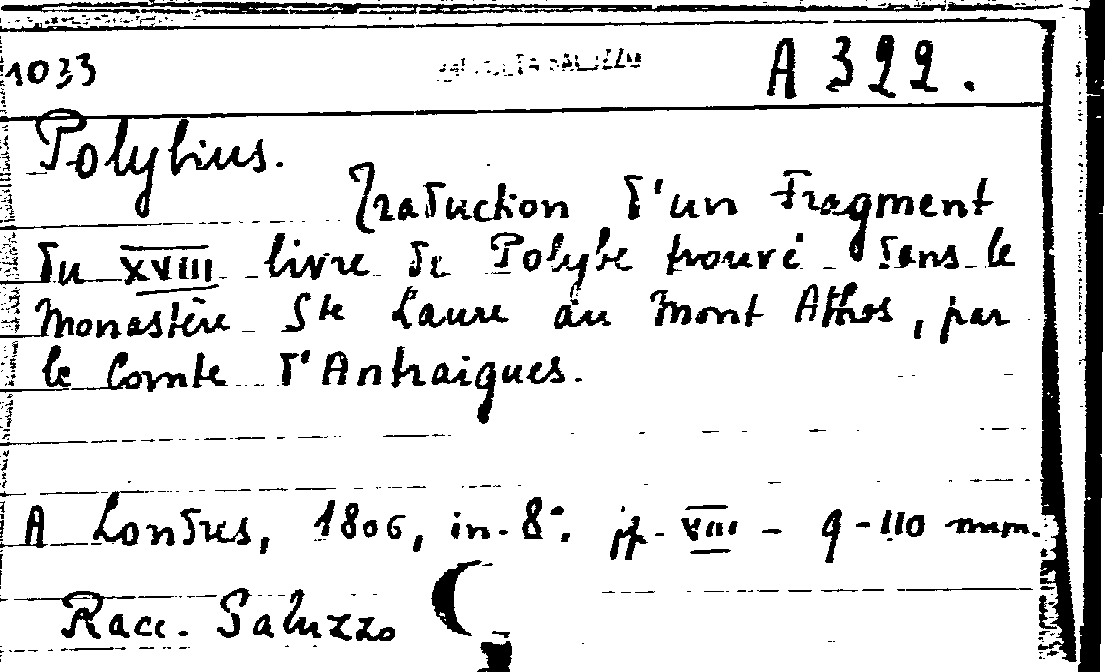 1033 RACCOLTA SALUZZO A 322.
Polybius.
Traduction d'un Fragment
du XVIII livre de Polybe trouvé dans le
Monastère Ste Laure au Mont Athos, par
le Comte d'Antraigues.
A Londres, 1806, in-8°. pp. VIII - 9-110 num.
Racc. Saluzzo